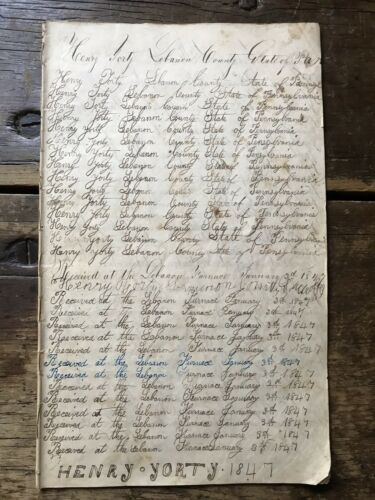 Henry Yorty Lebanon County State of Pa
Henry Yorty Lebanon County State of Pennsyl
Henry Yorty Lebanon County State of Pennsylvania
Henry Yorty Lebanon County State of Pennsylvania
Henry Yorty Lebanon County State of Pennsylvania
Henry Yorty Lebanon County State of Pennsylvania
Henry Yorty Lebanon County State of Pensylvania
Henry Yorty Lebanon County State of Pennsylvania
Henry Yorty Lebanon County State of Pennsylvania
Henry Yorty Lebanon County State of Pennsylvania
Henry Yorty Lebanon County State of Pennsylvania
Henry Yorty Lebanon County State of Pensylvania
Henry Yorty Lebanon County State of Pennsylvania
Henry Yorty Lebanon County State of Pennsylvania
Henry Yorty Lebanon County State of Pennsylvania
Henry Yorty Lebanon County State of Pensylvania
Received at the Lebanon Furnace January 3d 1847
Henry Yorty
Received at the Lebanon Furnace January 3th 1847
Received at the Lebanon Furnace January 3th 1847
Received at the Lebanon Furnace January 3th 1847
Received at the Lebanon Furnace January 3th 1847
Received at the Lebanon Furnace January 3th 1847
Received at the Lebanon Furnace January 3th 1847
Received at the Lebanon Furnace January 3th 1847
Received at the Lebanon Furnace January 3th 1847
Received at the Lebanon Furnace January 3th 1847
Received at the Lebanon Furnace January 3th 1847
Received at the Lebanon Furnace January 3th 1847
Received at the Lebanon Furnace January 3th 1847
Received at the Lebanon Furnace January 3th 1847
HENRY YORTY 1847